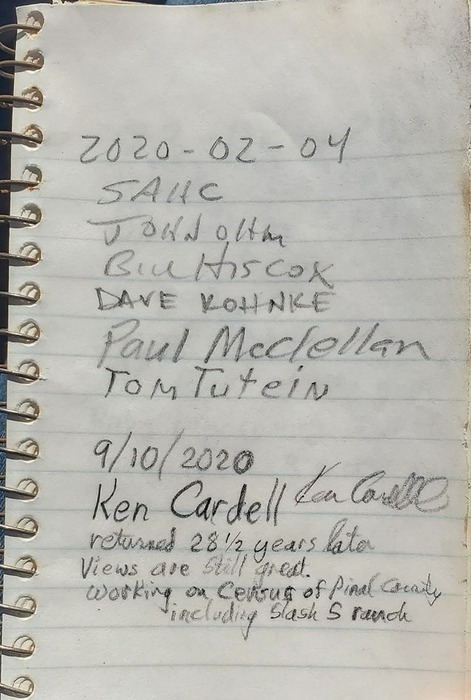 2020-02-04
SAHC
JOHN OHM
Bill Hiscox
DAVE KOHNKE
Paul Mcclellan
Tom Tutein
9/10/2020
Ken Cardell Ken Cardell
returned 28 1/2 years later
Views are still great.
working on Census of Pinal County
including Slash S ranch